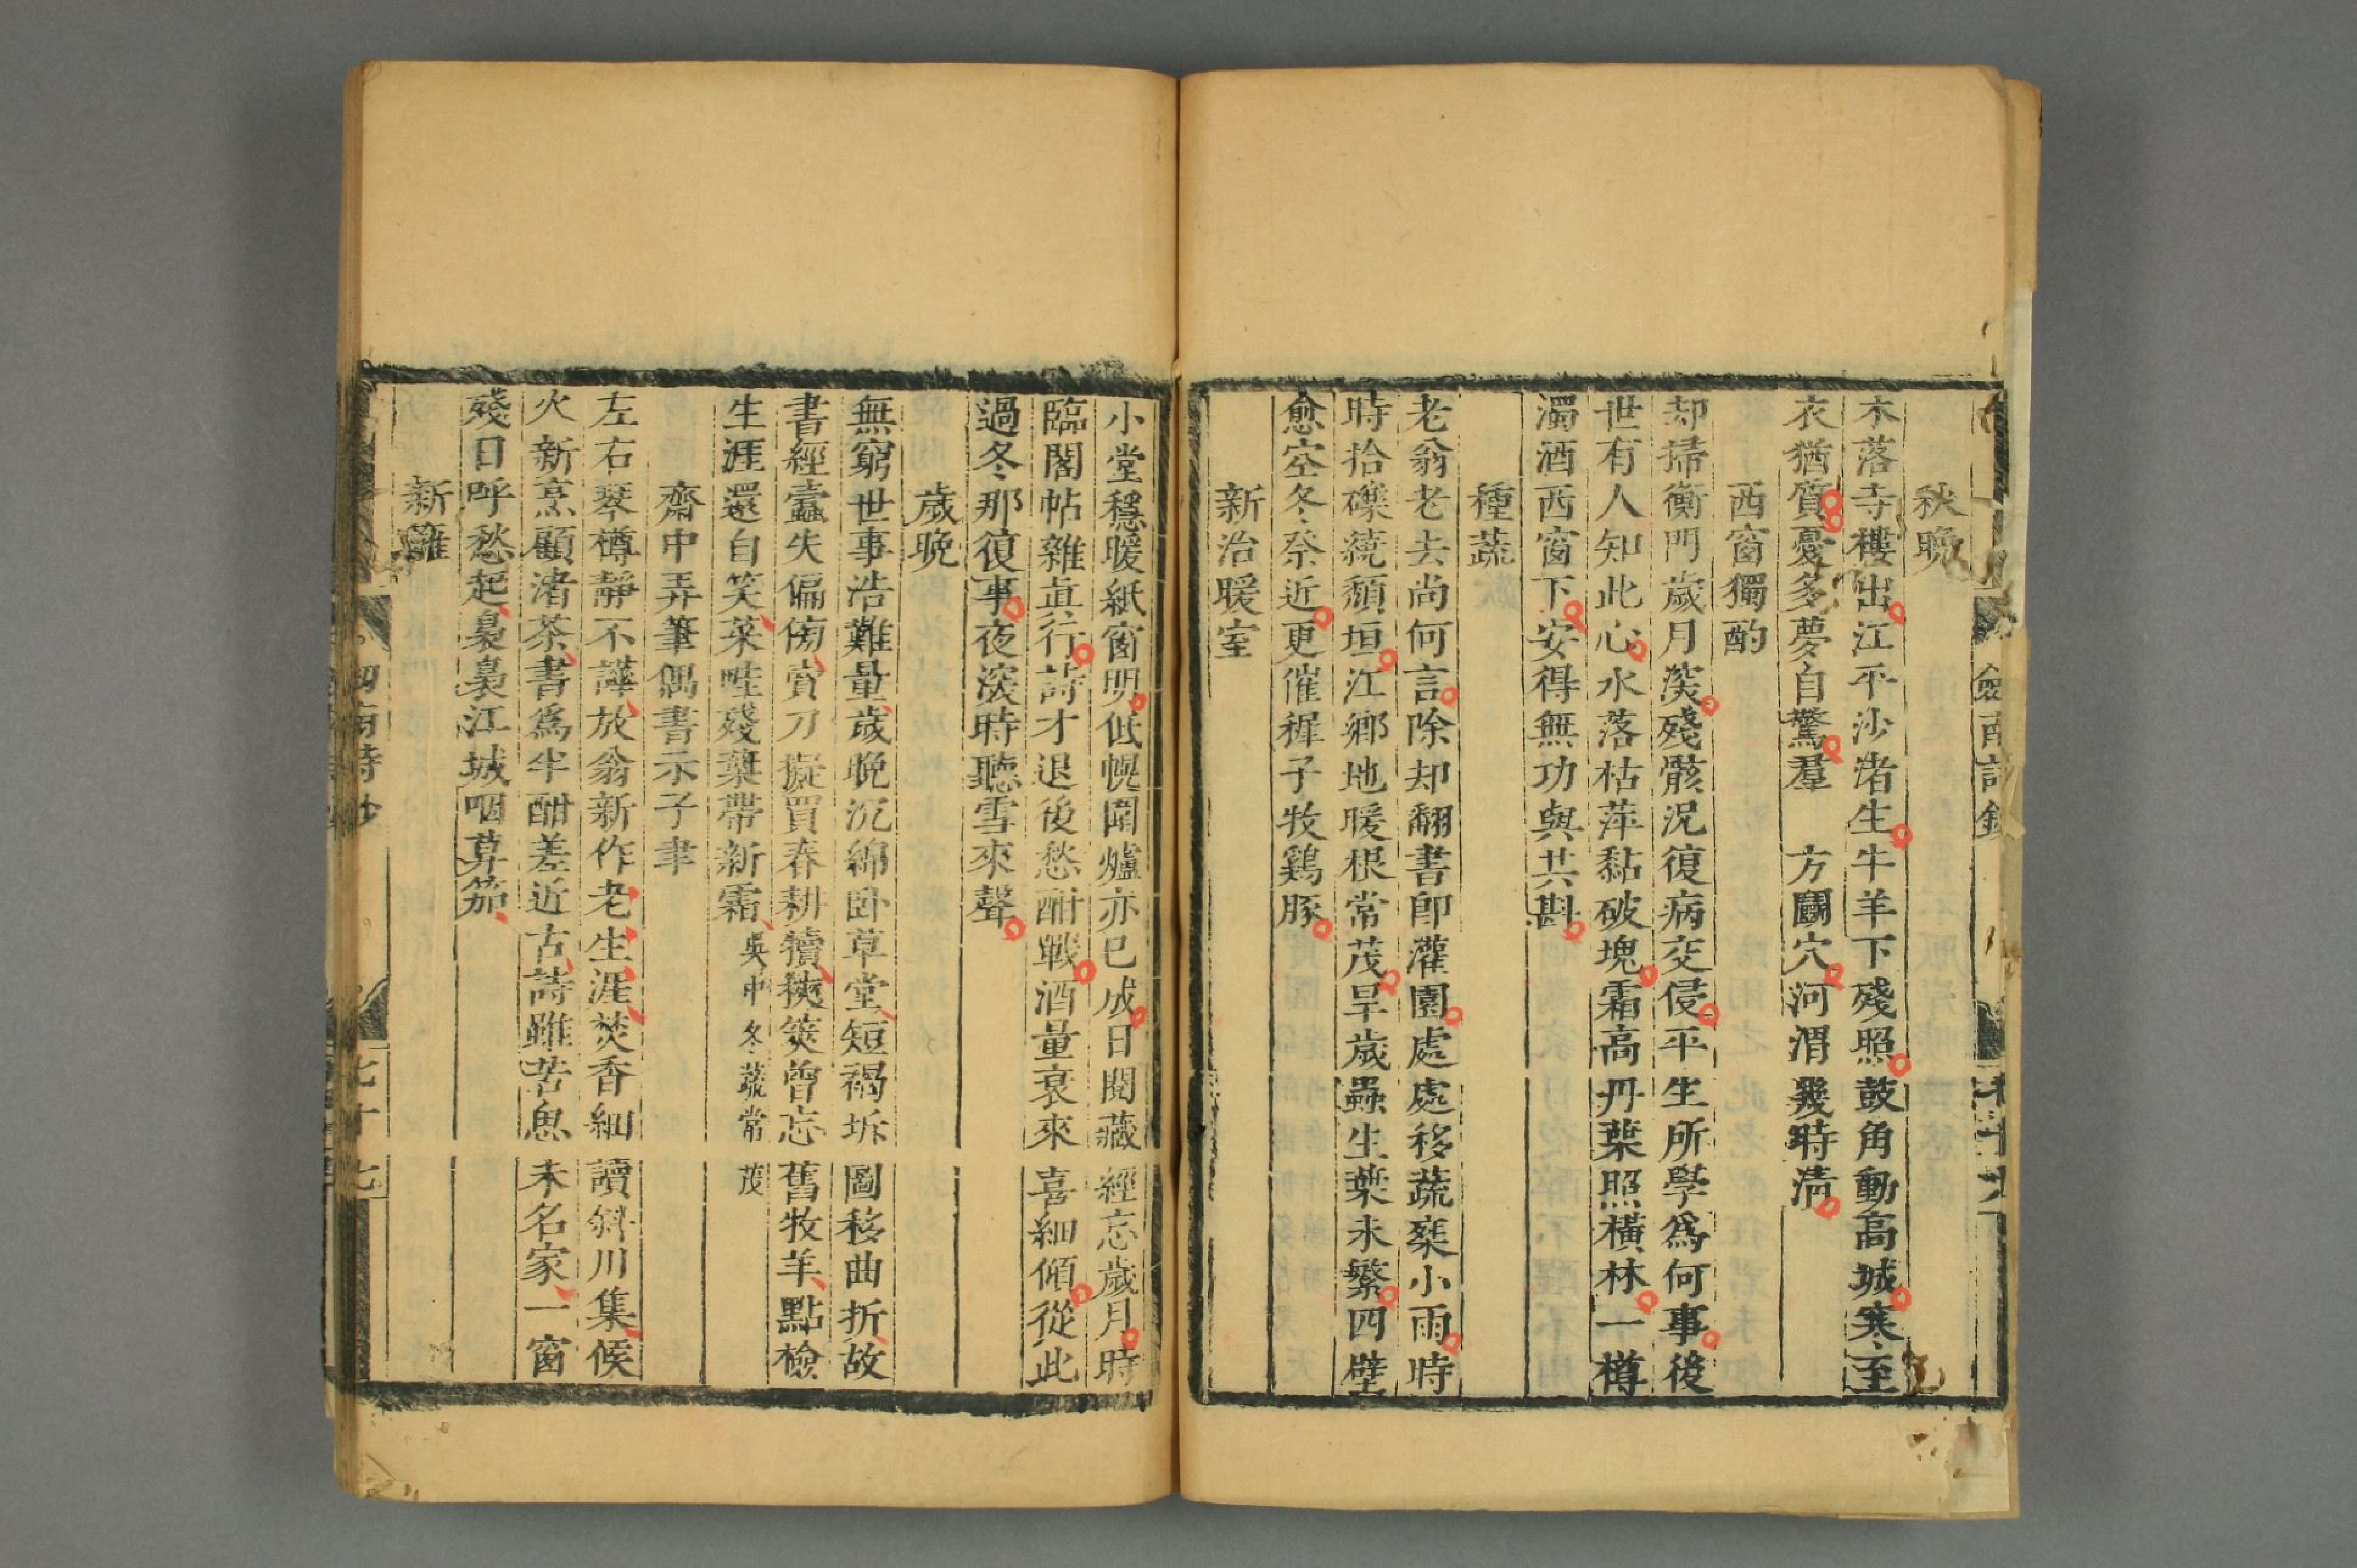 秋晚
木落寺樓出江平沙渚生牛羊下殘照鼓角動高城寒至
衣猶質憂多夢自驚羣 方鬭穴河渭幾時清
西窗獨酌
却掃衡門歲月深殘骸況復病交侵平生所學爲何事後
世有人知此心水落枯萍黏破塊霜高丹葉照橫林一樽
濁酒西窗下安得無功與共斟
種蔬
老翁老去尚何言除却翻書即灌園處處移蔬乘小雨時
時拾礫繞頹垣江鄉地暖根常茂旱歲蟲生葉未繁四壁
愈空冬祭近更催穉子牧鷄豚
新治暖室
小堂穩暖紙窗明低幌圍爐亦已成日閱藏經忘歲月時
臨閣帖雜眞行詩才退後愁酣戰酒量衰來喜細傾從此
過冬那復事夜深時聽雪來聲
歲晚
無窮世事浩難量歲晚沉綿卧草堂短褐坼圖移曲折故
書經蠹失偏傍賣刀擬買春耕犢挾筴曾忘舊牧羊點檢
生涯還自笑菜畦殘葉帶新霜吳中冬蔬常茂
齋中弄筆偶書示子聿
左右琴樽靜不譁放翁新作老生涯焚香細讀斜川集候
火新烹顧渚茶書爲半酣差近古詩雖苦思未名家一窗
殘日呼愁起裊裊江城咽暮笳
新籬
七十七